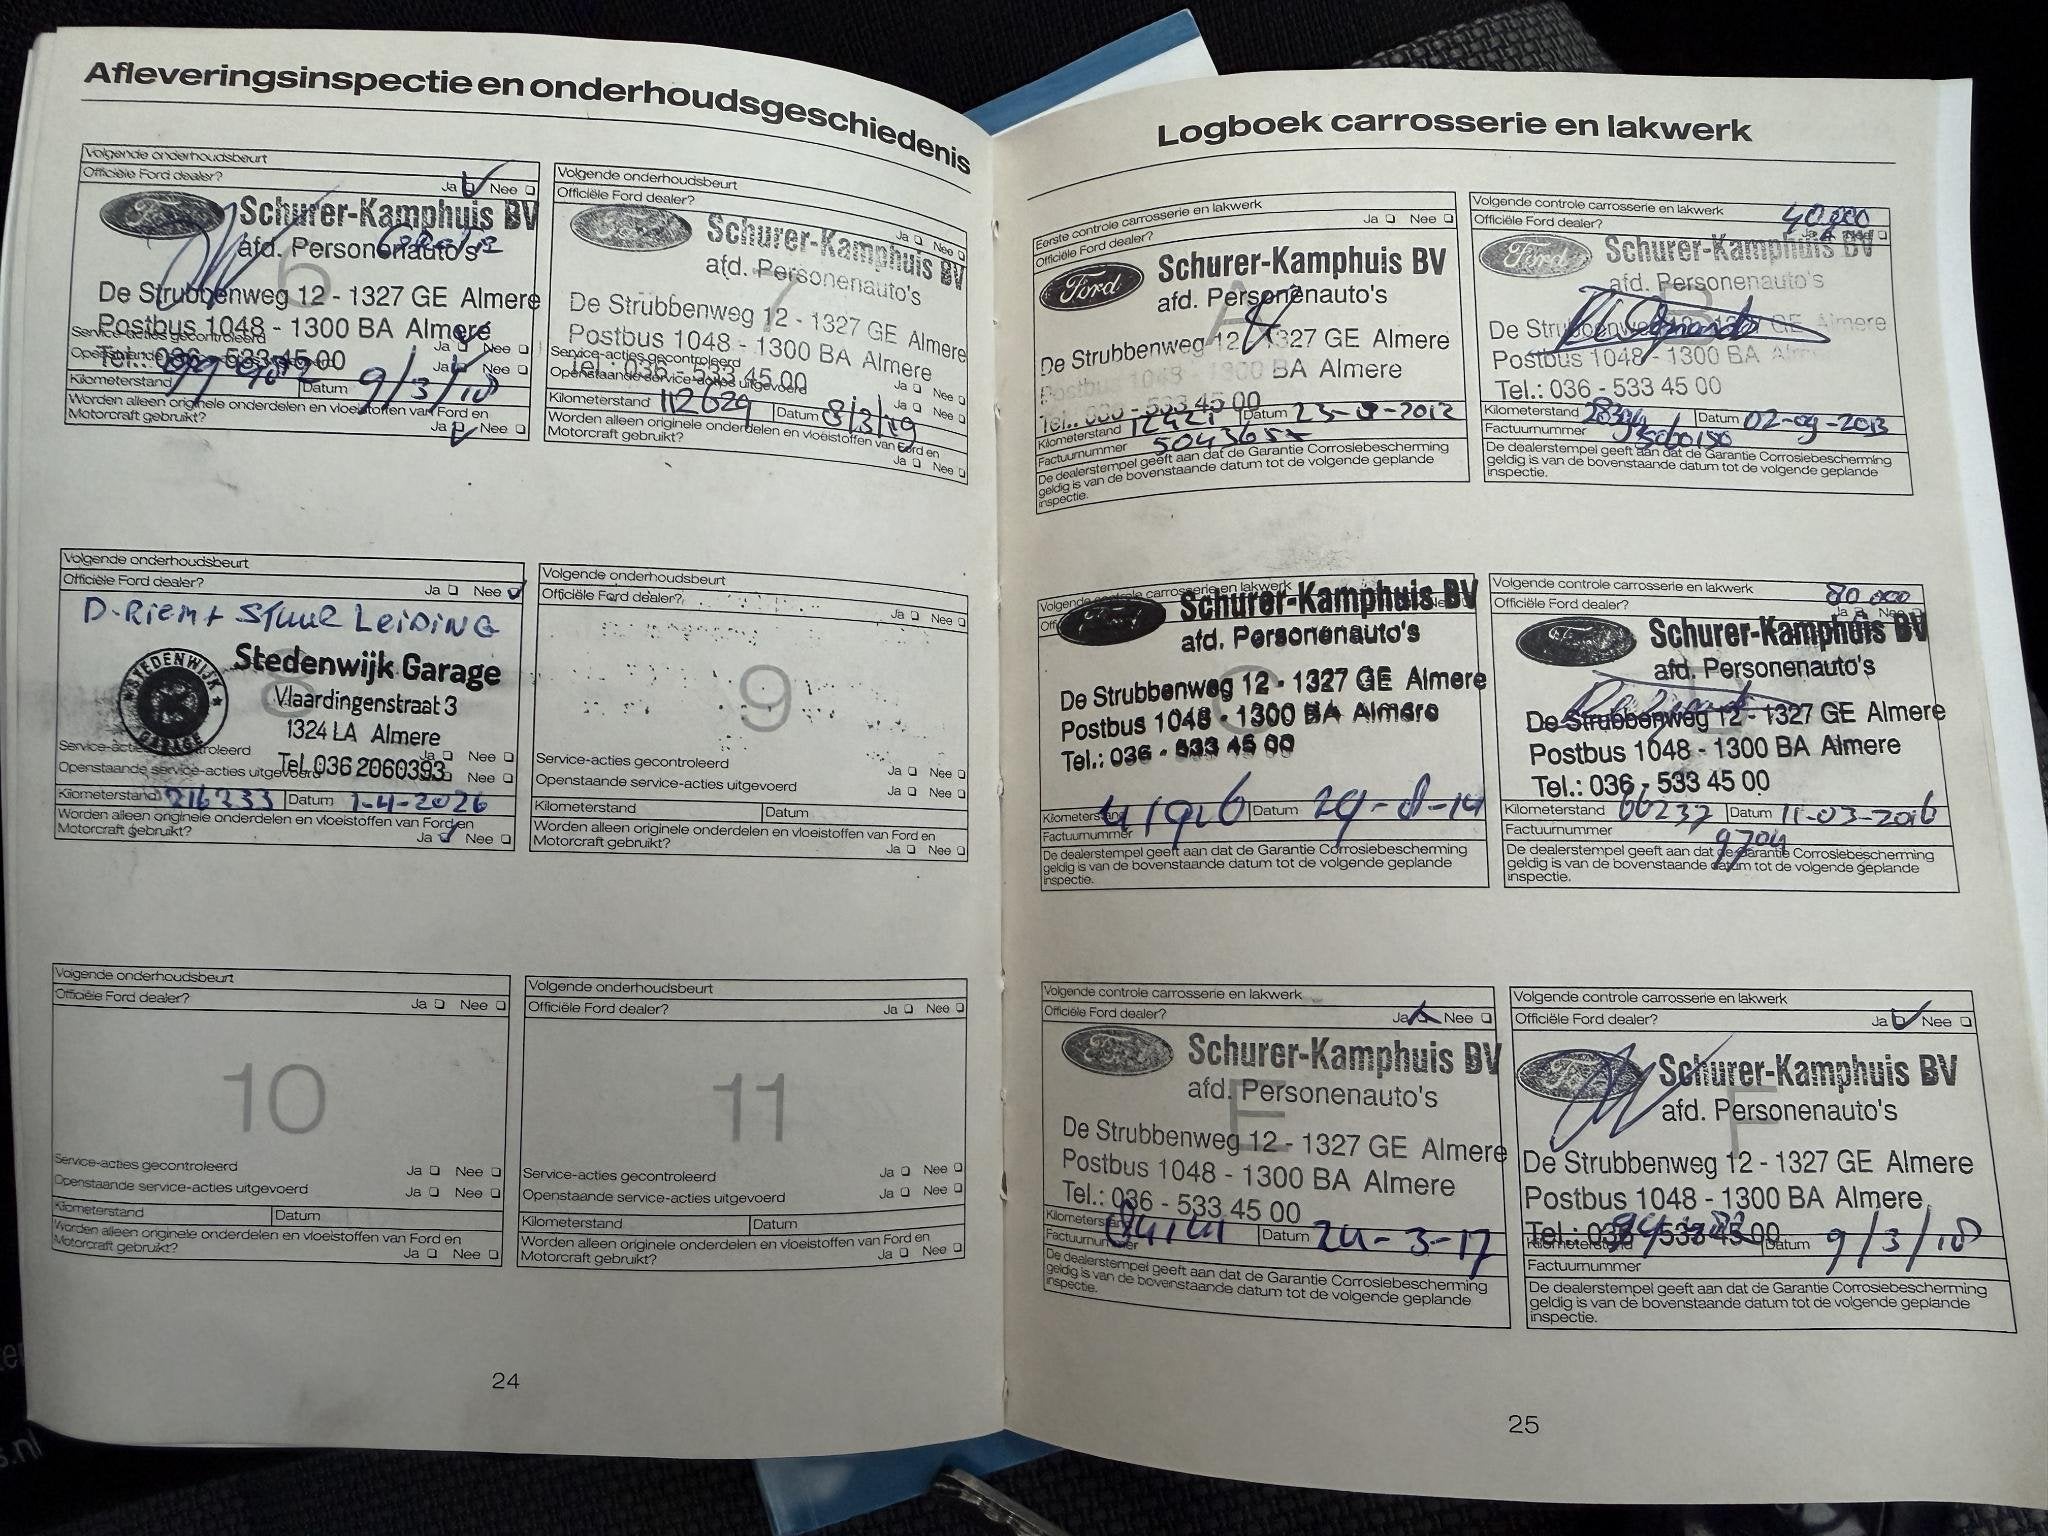 Afleveringsinspectie en onderhoudsgeschiedenis
Volgende onderhoudsbeurt
Officiële Ford dealer? Ja Nee
Ford Schurer-Kamphuis BV
afd. Personenauto's
6
De Strubbenweg 12 - 1327 GE Almere
Postbus 1048 - 1300 BA Almere
Service-acties gecontroleerd Ja Nee
Tel.: 036 - 533 45 00
Ja Nee
Kilometerstand Datum 9/3/18
Worden alleen originele onderdelen en vloeistoffen van Ford en
Motorcraft gebruikt? Ja Nee
Volgende onderhoudsbeurt
Officiële Ford dealer? Ja Nee
Ford Schurer-Kamphuis BV
afd. Personenauto's
7
De Strubbenweg 12 - 1327 GE Almere
Postbus 1048 - 1300 BA Almere
Service-acties gecontroleerd Ja Nee
Tel.: 036 - 533 45 00
Openstaande service-acties uitgevoerd Ja Nee
Kilometerstand 112629 Datum 8/3/19
Worden alleen originele onderdelen en vloeistoffen van Ford en
Motorcraft gebruikt? Ja Nee
Volgende onderhoudsbeurt
Officiële Ford dealer? Ja Nee
D-RIEM + STUUR LEIDING
STEDENWIJK GARAGE
Stedenwijk Garage
8
Vlaardingenstraat 3
1324 LA Almere
Service-acties gecontroleerd Ja Nee
Tel. 036 2060393
Openstaande service-acties uitgevoerd Ja Nee
Kilometerstand 216233 Datum 1-4-2026
Worden alleen originele onderdelen en vloeistoffen van Ford en
Motorcraft gebruikt? Ja Nee
Volgende onderhoudsbeurt
Officiële Ford dealer? Ja Nee
9
Service-acties gecontroleerd Ja Nee
Openstaande service-acties uitgevoerd Ja Nee
Kilometerstand Datum
Worden alleen originele onderdelen en vloeistoffen van Ford en
Motorcraft gebruikt? Ja Nee
Volgende onderhoudsbeurt
Officiële Ford dealer? Ja Nee
10
Service-acties gecontroleerd Ja Nee
Openstaande service-acties uitgevoerd Ja Nee
Kilometerstand Datum
Worden alleen originele onderdelen en vloeistoffen van Ford en
Motorcraft gebruikt? Ja Nee
Volgende onderhoudsbeurt
Officiële Ford dealer? Ja Nee
11
Service-acties gecontroleerd Ja Nee
Openstaande service-acties uitgevoerd Ja Nee
Kilometerstand Datum
Worden alleen originele onderdelen en vloeistoffen van Ford en
Motorcraft gebruikt? Ja Nee
24
Logboek carrosserie en lakwerk
Eerste controle carrosserie en lakwerk
Officiële Ford dealer? Ja Nee
Ford Schurer-Kamphuis BV
afd. Personenauto's
A
De Strubbenweg 12 - 1327 GE Almere
Postbus 1048 - 1300 BA Almere
Tel.: 036 - 533 45 00
Kilometerstand 12421 Datum
Factuurnummer
De dealerstempel geeft aan dat de Garantie Corrosiebescherming
geldig is van de bovenstaande datum tot de volgende geplande
inspectie.
Volgende controle carrosserie en lakwerk 40.000
Officiële Ford dealer? Ja Nee
Ford Schurer-Kamphuis BV
afd. Personenauto's
B
De Strubbenweg 12 - 1327 GE Almere
Postbus 1048 - 1300 BA Almere
Tel.: 036 - 533 45 00
Kilometerstand Datum 02-09-2013
Factuurnummer
De dealerstempel geeft aan dat de Garantie Corrosiebescherming
geldig is van de bovenstaande datum tot de volgende geplande
inspectie.
Volgende controle carrosserie en lakwerk
Schurer-Kamphuis BV
afd. Personenauto's
C
De Strubbenweg 12 - 1327 GE Almere
Postbus 1048 - 1300 BA Almere
Tel.: 036 - 533 45 00
Kilometerstand 41926 Datum 29-8-14
Factuurnummer
De dealerstempel geeft aan dat de Garantie Corrosiebescherming
geldig is van de bovenstaande datum tot de volgende geplande
inspectie.
Volgende controle carrosserie en lakwerk 80.000
Officiële Ford dealer? Ja Nee
Schurer-Kamphuis BV
afd. Personenauto's
De Strubbenweg 12 - 1327 GE Almere
Postbus 1048 - 1300 BA Almere
Tel.: 036 - 533 45 00
Kilometerstand 66237 Datum 11-03-2016
Factuurnummer 9704
De dealerstempel geeft aan dat de Garantie Corrosiebescherming
geldig is van de bovenstaande datum tot de volgende geplande
inspectie.
Volgende controle carrosserie en lakwerk
Officiële Ford dealer? Ja Nee
Ford Schurer-Kamphuis BV
afd. Personenauto's
E
De Strubbenweg 12 - 1327 GE Almere
Postbus 1048 - 1300 BA Almere
Tel.: 036 - 533 45 00
Kilometerstand Datum 24-3-17
Factuurnummer
De dealerstempel geeft aan dat de Garantie Corrosiebescherming
geldig is van de bovenstaande datum tot de volgende geplande
inspectie.
Volgende controle carrosserie en lakwerk
Officiële Ford dealer? Ja Nee
Ford Schurer-Kamphuis BV
afd. Personenauto's
F
De Strubbenweg 12 - 1327 GE Almere
Postbus 1048 - 1300 BA Almere
Tel.: 036 - 533 45 00
Kilometerstand Datum 9/3/18
Factuurnummer
De dealerstempel geeft aan dat de Garantie Corrosiebescherming
geldig is van de bovenstaande datum tot de volgende geplande
inspectie.
25
s.nl